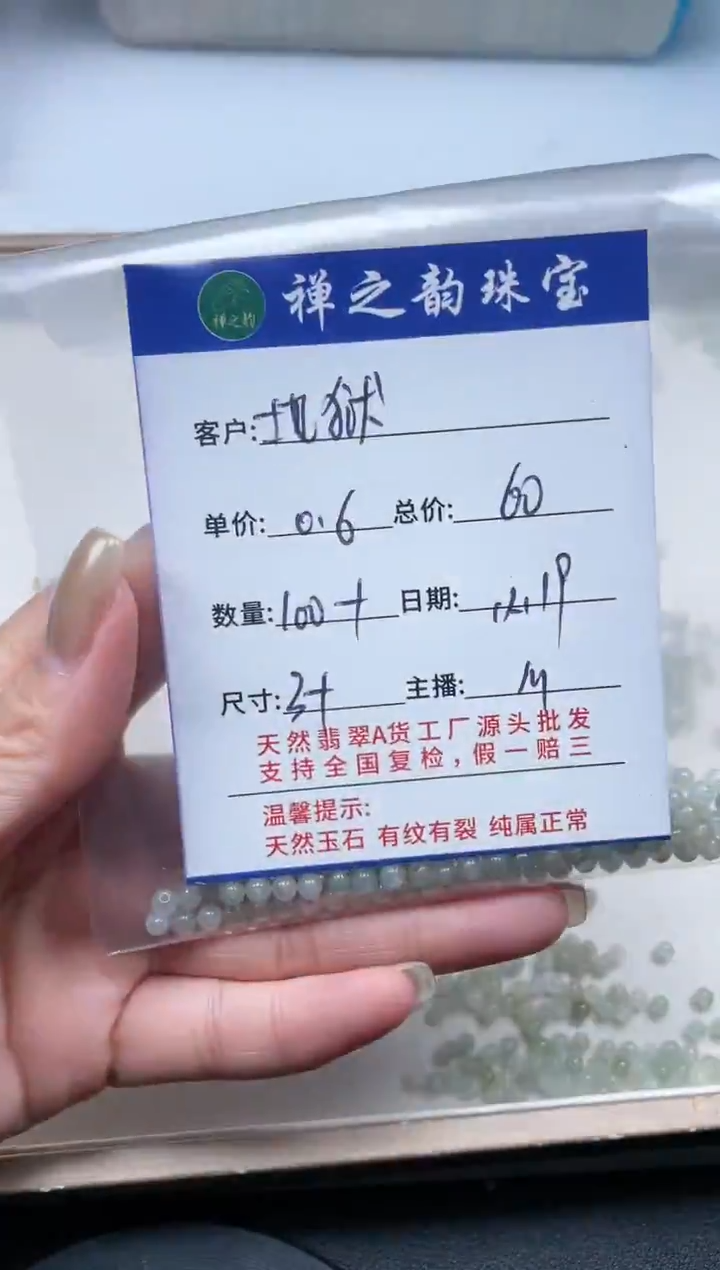 禅之韵 禅之韵珠宝
客户: 地狱
单价: 0.6 总价: 60
数量: 100 日期:
尺寸: 3+ 主播:
天然翡翠A货工厂源头批发
支持全国复检,假一赔三
温馨提示:
天然玉石 有纹有裂 纯属正常